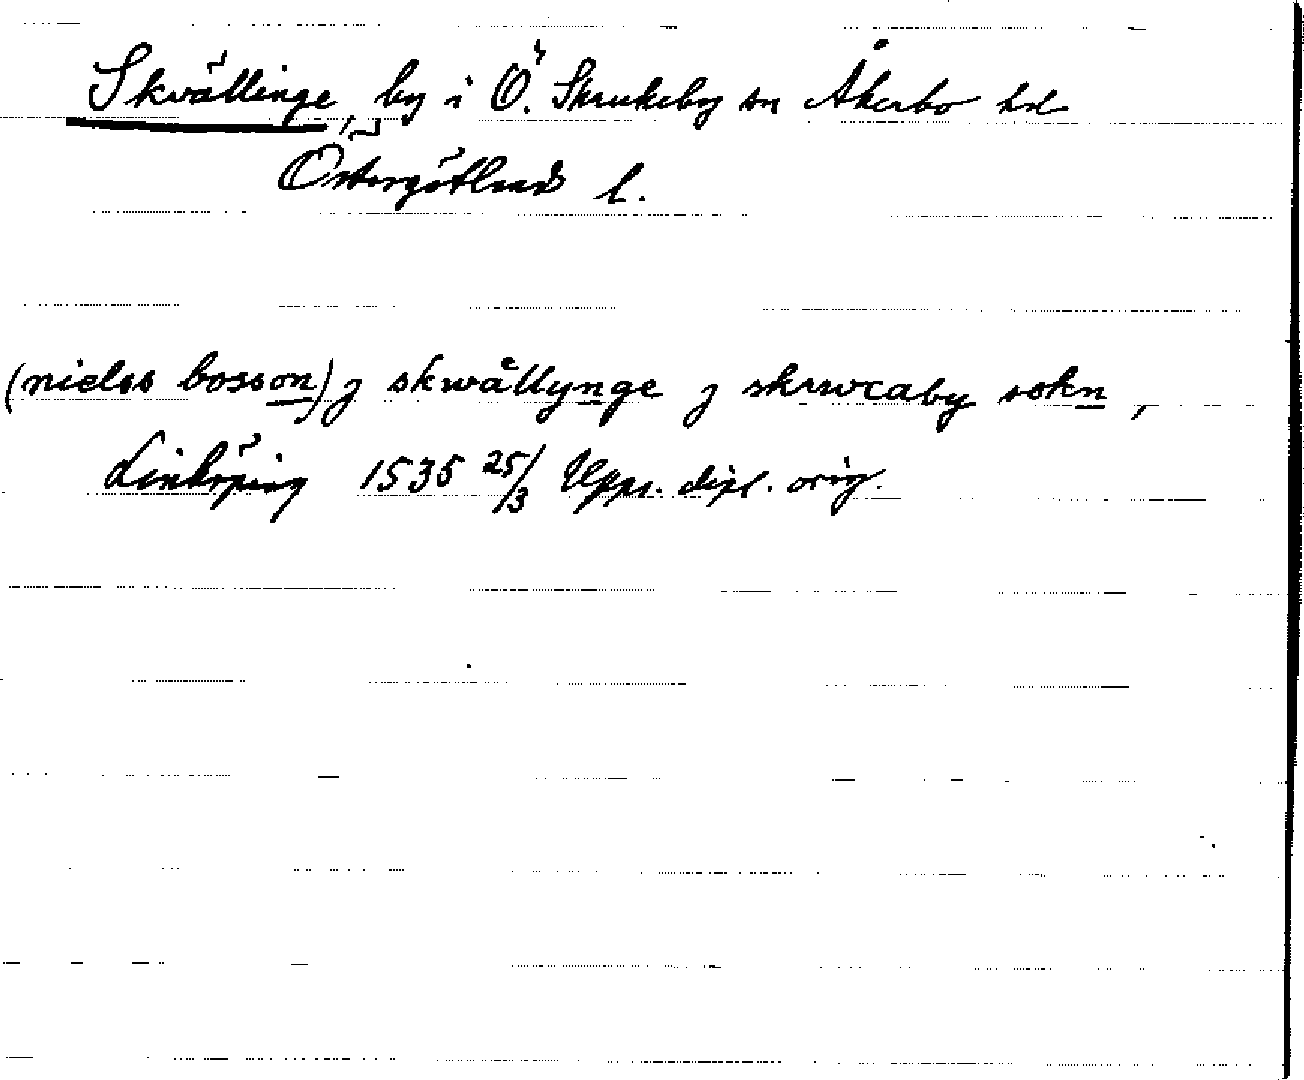 Skvällinge, by i Ö. Skrukeby sn Åkerbo hd
Östergötlands l.
(niclos bosson) j skwållynge j skrwcaby sokn,
Linköping 1535 25/3 Upps. dipl. orig.